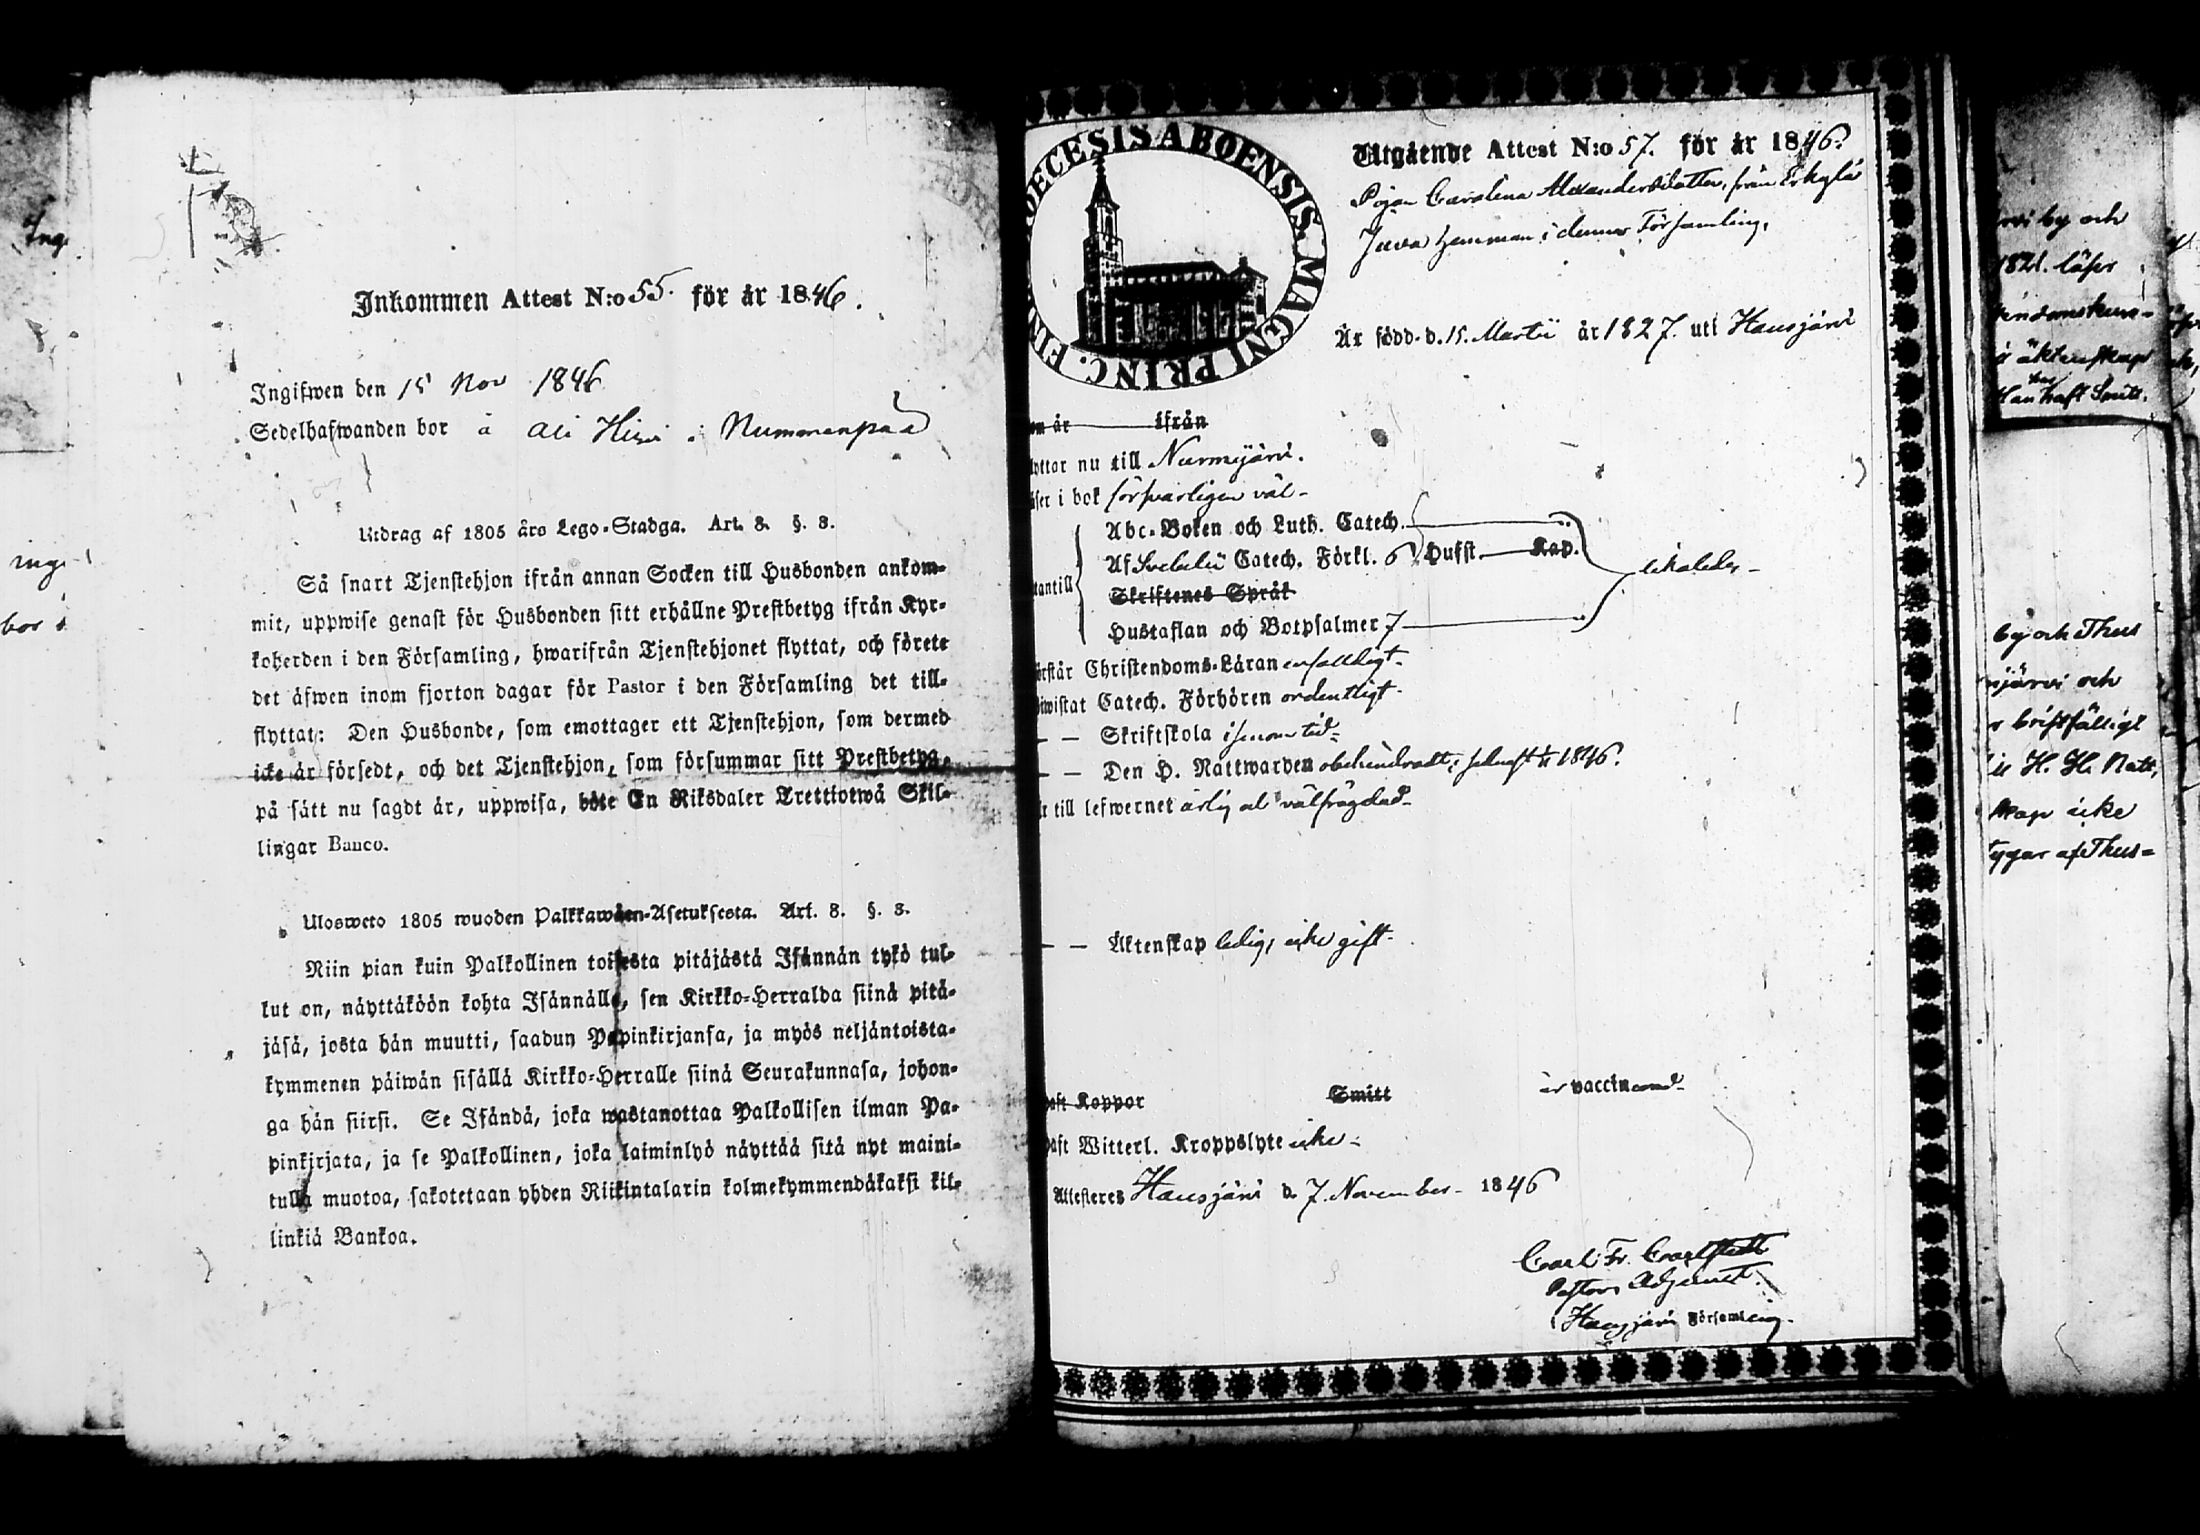 Inkommen Attest N:o 55. för år 1846.
Ingifwen den 15 Nov 1846
Sedelhafwanden bor å Ali Hirvi i Nummenpää
Utdrag af 1805 års Lego-Stadga. Art. 8. §. 8.
Så snart Tjenstehjon ifrån annan Socken till Husbonden ankom-
mit, uppwise genast för Husbonden sitt erhållne Prestbetyg ifrån Kyr-
koherden i den Församling, hwarifrån Tjenstehjonet flyttat, och förete
det äfwen inom fjorton dagar för Pastor i den Församling det till-
flyttat: Den Husbonde, som emottager ett Tjenstehjon, som dermed
icke är försedt, och det Tjenstehjon, som försummar sitt Prestbetyg,
på sätt nu sagdt är, uppwisa, böte En Riksdaler Trettiotwå Skil-
lingar Banco.
Ulosweto 1805 wuoden Palkkawäen-Asetuksesta. Art. 8. §. 8.
Niin pian kuin Palkollinen toisesta pitäjästä Isännän tykö tul-
lut on, näyttäköön kohta Isännälle, sen Kirkko-Herralda siinä pitä-
jäsä, josta hän muutti, saadun Papinkirjansa, ja myös neljäntoista-
kymmenen päiwän sisällä Kirkko-Herralle siinä Seurakunnasa, johon-
ga hän siirsi. Se Isändä, joka wastanottaa Palkollisen ilman Pa-
pinkirjata, ja se Palkollinen, joka laiminlyö näyttää sitä nyt maini-
tulla muotoa, sakotetaan yhden Riikintalarin kolmekymmendäkaksi kil-
linkiä Bankoa.
DECESIS ABOENSIS. MAGNI PRINC. FIN
Utgående Attest N:o 57. för år 1846.
Pigan Carolina Alexandersdotter, från Erkylä
Juva hemman i denna Församling,
Är född d. 15. Martii år 1827. uti Hausjärvi
om år ifrån
lyttar nu till Nurmijärvi.
äser i bok försvarligen väl-
Abc-Boken och Luth. Catech.
Af Svebelii Catech. Förkl. 6 Hufst. Kap.
tantill likaledes-
Skriftenes Språk
Hustaflan och Botpsalmer 7
örstår Christendoms-Läran enfaldigt-
iwistat Catech. Förhören ordentligt-
— — Skriftskola i sinom tid-
— — Den H. Nattwarden obehindradt; senast 1846.
r till lefwernet ärlig och välfrägdad-
— — Äktenskap ledig, icke gift-
aft Koppor Smitt är vaccinerad-
aft Witterl. Kroppslyte icke-
Attesteras Hausjärvi d. 7. November- 1846
Carl Fr. Carlstedt
Pastors Adjunct.
Hausjärvi Församling.
Ing
inge
bor å
rvi by och
1821. läser
Christendomskun-
äktenskap
Han haft Smitt.
by och Thus
njärvi och
bristfälligt
H. H. Natt,
skap icke
tygar af Thus=